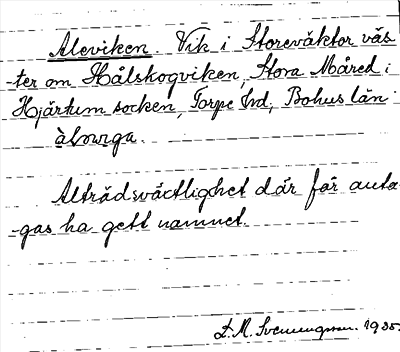 Aleviken. Vik i Storeväktor väs-
-ter om Hålskogviken, Stora Måred i
Hjärtum socken, Torpe hd, Bohus län
Alträdsväctlighet där får anta-
-gas ha gett namnet.
D. M. Svenungsson. 1935.